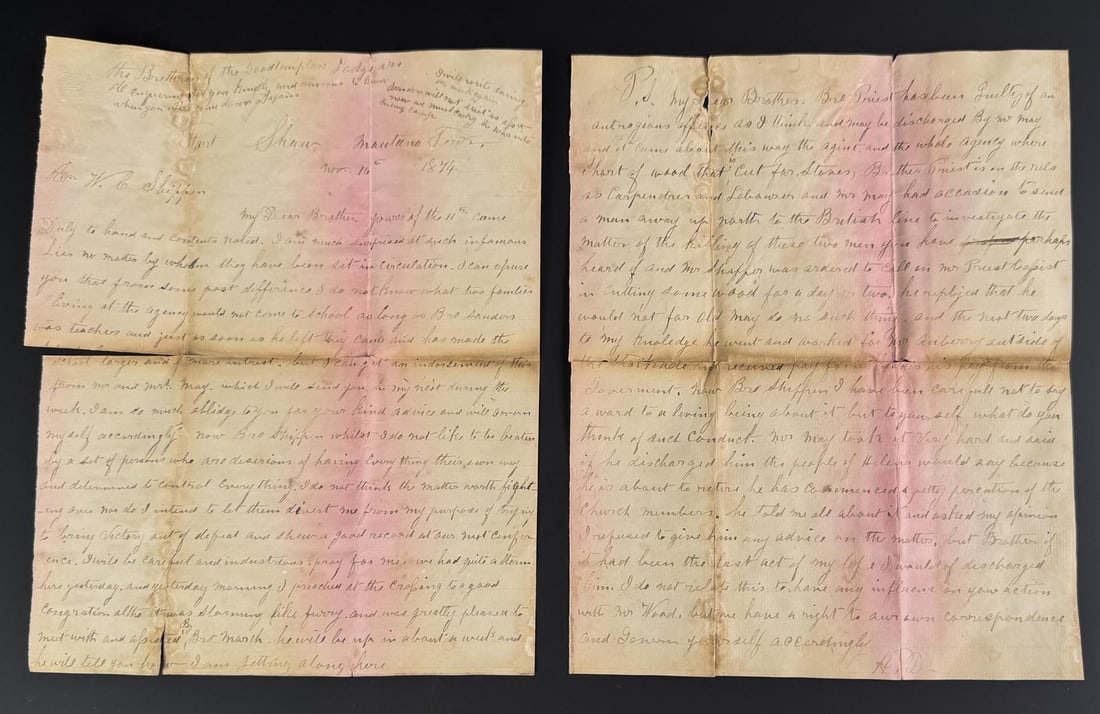 the Bretheren of the Goodtemplars Lodge are
all enquiring for you kindly and anxious to know
when you will come down again
I will write during
next again
Sanders will not suit as
now as must every
living camp
Fort Shaw Montana Terr.
Nov. 16th 1874
W. C. Shippen
My Dear Brother yours of the 11th came
Duly to hand and contents noted. I am much surprised at such infamous
Lies no matter by whom they have been sit in circulation. I can assure
you that from some past difference I do not know what two families
Living at the agency would not come to school as long as Bro Sanders
was teacher and just as soon as he left they came and has made the
school larger and of more intrest. but I can get an indorsement of this
from mr and mrs. May. which I will send you in my nest during the
week. I am so much oblidge to you for your Kind advice and will Govern
myself accordingly. now Bro Shippen whilst I do not like to be beaten
by a set of persons who are desirious of having Everything their own way
and determined to control Everything. I do not think the matter worth fight-
ing over nor do I intend to let them divert me from my purpose of trying
to bring Victory out of defeat and shew a good record at our next Confer-
ence. I will be careful and industreous. pray for me. we had quite a storm
here yesterday. and yesterday morning I preached at the Crossing to a good
congration altho it was storming like furry. and was greatly pleased to
meet with and Bro Marsh. he will be up in about a week and
he will tell you how I am getting along here
P.S. My Dear Brother. Bro Priest has been Guilty of an
outragious offence as I think and may be discharged By mr may
and it came about this way the agint, and the whole agency where
Short of wood that is Cut for Stoves, Brother Priest is on the rols
as Carpendrer and Labourer and mr may had accasion to send
a man away up north to the British line to investigate the
matter of the killing of these two men you have perhaps
heard of and Mr Shaffer was ordered to Call on mr Priest to asist
in cutting some wood for a day or two, he replied that he
would not for old may do no such thing. and the next two days
to my Knoledge he went and worked for Mr Auberry outside of
the and received pay for it besides his pay from the
Goverment. now Bro Shippen I have been carefull not to say
a word to a living being about it but to your self what do you
think of such Conduct. mr may took it Very hard and said
if he discharged him the people of Helena would say because
he is about to retire he has commenced a petty percution of the
Church members. he told me all about it and asked my opinion
I refused to give him any advice on the matter, but Brother if
it had been the last act of my life I would of discharged
him. I do not relate this to have any influence on your action
with Mr Wood. but we have a right to our own correspondence
and Govern yourself accordingly
H.P.D-